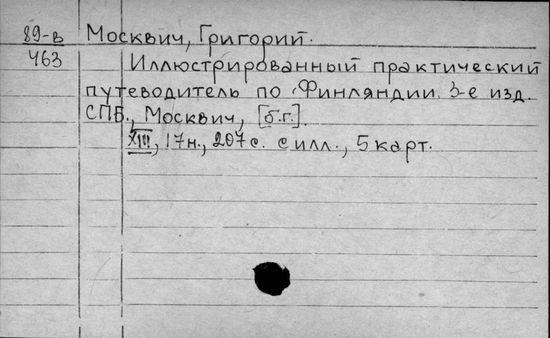 89-в Москвич, Григорий.
463 Иллюстрированный практический
путеводитель по Финляндии. 3-е изд.
СПБ., Москвич, [б.г.].
XIII, 17н., 207 с. с илл., 5 карт.